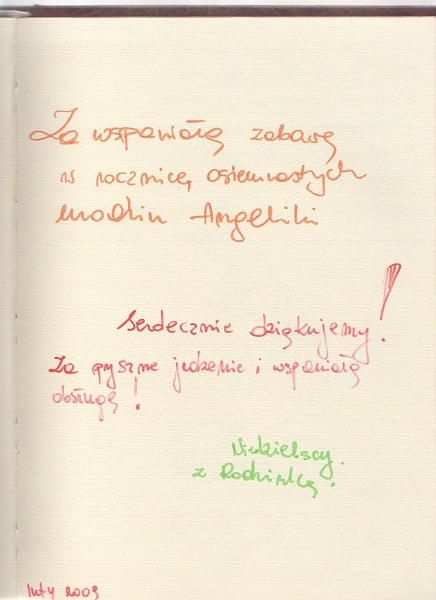 Za wspaniałą zabawę
w rocznicę osiemnastych
urodzin Angeliki
serdecznie dziękujemy!
Za pyszne jedzenie i wspaniałą
obsługę!
Niedzielscy
z Rodzinką.
luty 2009